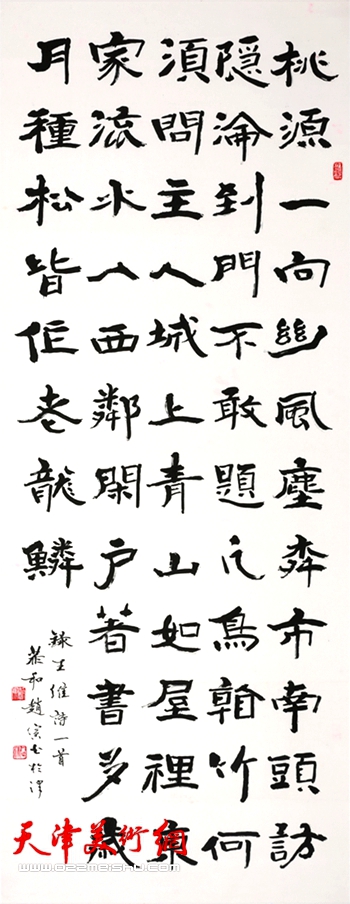 桃源一向絕風塵柳市南頭訪
隱淪到門不敢題凡鳥看竹何
須問主人城上青山如屋裡東
家流水入西鄰閉戶著書多歲
月種松皆作老龍鱗
錄王維詩一首
天津美術網
www.022meishu.com